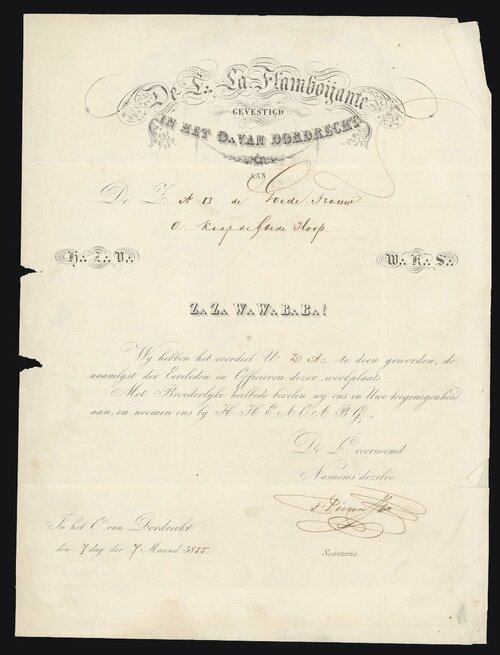 De L∴ La Flamboijante
GEVESTIGD
IN HET O∴ VAN DORDRECHT
AAN
De Z∴ A □ de Goede Trouw
O∴ Kaap de Goede Hoop
H∴ Z∴ V∴ W∴ K∴ S∴
Z∴ Z∴ W∴ W∴ B∴ B∴!
Wij hebben het voordeel U Z A∴ te doen geworden, de
naamlijst der Eereleden en Officieren dezer werkplaats
Met Broederlijke heilbede bevelen wij ons in Uwe toegenegenheid
aan, en noemen ons bij H H E A C A B G∴
De L∴ voornoemd
Namens dezelve
In het O∴ van Dordrecht
den 7 dag der 7 Maand 5855
Secretaris